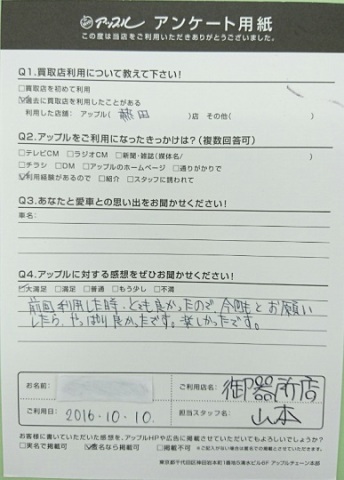 アップル アンケート用紙
この度は当店をご利用いただきありがとうございました。
Q1.買取店利用について教えて下さい!
□買取店を初めて利用
☑過去に買取店を利用したことがある
利用した店舗: アップル( 熱田 )店 その他( )
Q2.アップルをご利用になったきっかけは?(複数回答可)
□テレビCM □ラジオCM □新聞・雑誌(媒体名/ )
□チラシ □DM □アップルのホームページ □通りがかりで
☑利用経験があるので □紹介 □スタッフに誘われて
Q3.あなたと愛車との思い出をお聞かせください!
車名:
Q4.アップルに対する感想をぜひお聞かせください!
☑大満足 □満足 □普通 □もう少し □不満
前回利用した時、とても良かったので、今回もとお願い
したら、やっぱり良かったです。楽しかったです。
お名前:
ご利用店名: 御器所店
ご利用日: 2016.10.10.
担当スタッフ名: 山本
お客様に書いていただいた感想を、アップルHPや広告に掲載させていただいてもよろしいでしょうか?
□実名で掲載可 ☑匿名なら掲載可 □掲載不可 ※ご記入がない場合は匿名での掲載とさせていただきます。
東京都千代田区神田岩本町1番地5清水ビル6F アップルチェーン本部